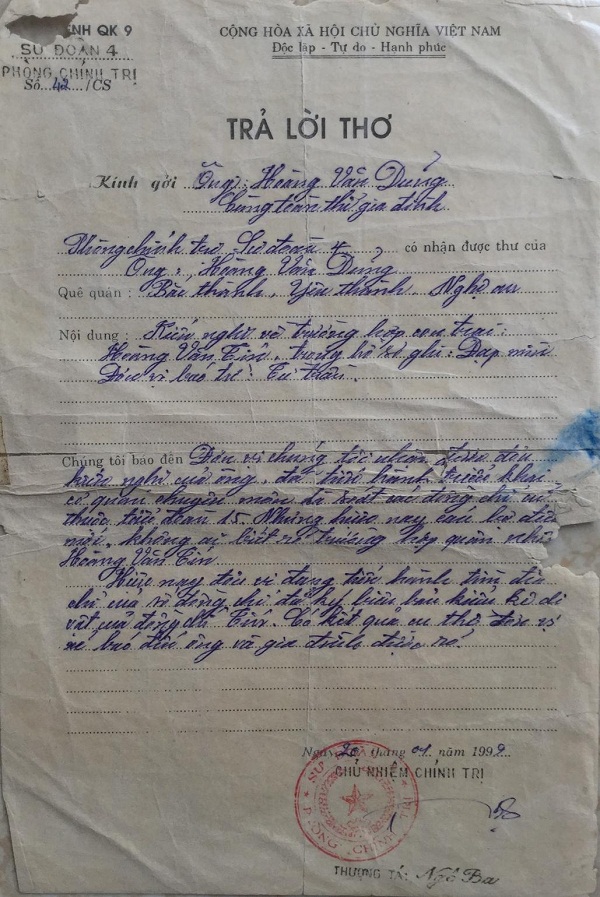 ỆNH QK 9
SƯ ĐOÀN 4
PHÒNG CHÍNH TRỊ
Số....42..../CS
CỘNG HÒA XÃ HỘI CHỦ NGHĨA VIỆT NAM
Độc lập - Tự do - Hạnh phúc
TRẢ LỜI THƠ
Kính gởi Ông: Hoàng Văn Dũng
Cùng toàn thể gia đình
Phòng chính trị Sư đoàn 4, có nhận được thư của
Ông: Hoàng Văn Dũng
Quê quán: Bảo thành, Yên thành, Nghệ an
Nội dung: Kiến nghị về trường hợp con trai:
Hoàng Văn Tín, trong hồ sơ ghi: Đạp mìn
Đơn vị báo tử: Tự thân.
Chúng tôi báo đến Đơn vị chúng tôi nhận được đơn
kiến nghị của ông, đã tiến hành triển khai
cơ quan chuyên môn rà soát các đồng chí cũ
thuộc tiểu đoàn 15. Nhưng hiện nay cán bộ đều
mới, không ai biết rõ trường hợp quân nhân
Hoàng Văn Tín
Hiện nay đơn vị đang tiến hành tìm địa
chỉ của đồng chí đã ký biên bản kiểm kê di
vật của đồng chí Tín. Có kết quả cụ thể đơn vị
sẽ báo đến ông và gia đình được rõ.
Ngày 20 tháng 01 năm 1999
CHỦ NHIỆM CHÍNH TRỊ
SƯ
PHÒNG CHÍNH
THƯỢNG TÁ: Ngô Ba